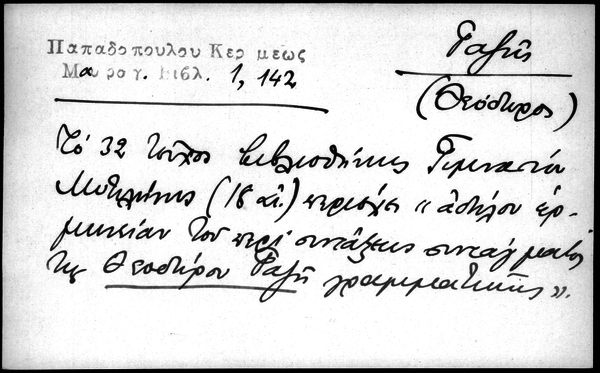 Παπαδοπούλου Κερ μεως
Μαυρογ. Βιβλ. 1, 142
Γαζῆς
(Θεόδωρος)
Τό 32 τεῦχος βιβλιοθήκης Γυμνασίου
Μυτιλήνης (18 αἰ.) περιέχει « ἀδήλου ἑρ-
μηνείαν τοῦ περί συντάξεως συνταγματος
τῆς Θεοδώρου Γαζῆ γραμματικῆς ».